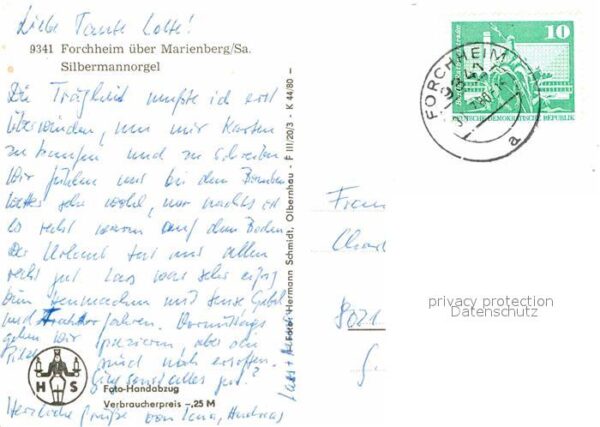 Liebe Tante Lotte!
9341 Forchheim über Marienberg/Sa.
Silbermannorgel
Die Trägheit mußte ich erst
überwinden, um mir Karten
zu kaufen und zu schreiben
Wir fühlen uns bei dem Bomben
wetter sehr wohl, nur nachts ist
es recht warm auf dem Boden
Der Urlaub tut uns allen
recht gut. Lars war sehr eifrig
beim Heumachen mit Sense Gabel
und Traktorfahren. Vormittags
gehen wir spazieren, aber die
Pilze sind noch
sonst alles gut?
Herzliche Grüße von Andreas
Lars +
H S
Foto-Handabzug
Verbraucherpreis -,25 M
Foto: Hermann Schmidt, Olbernhau - F III/20/3 - K 44/80
10
DEUTSCHE DEMOKRATISCHE REPUBLIK
FORCHHEIM
a
Frau
Char
8021
privacy protection
Datenschutz